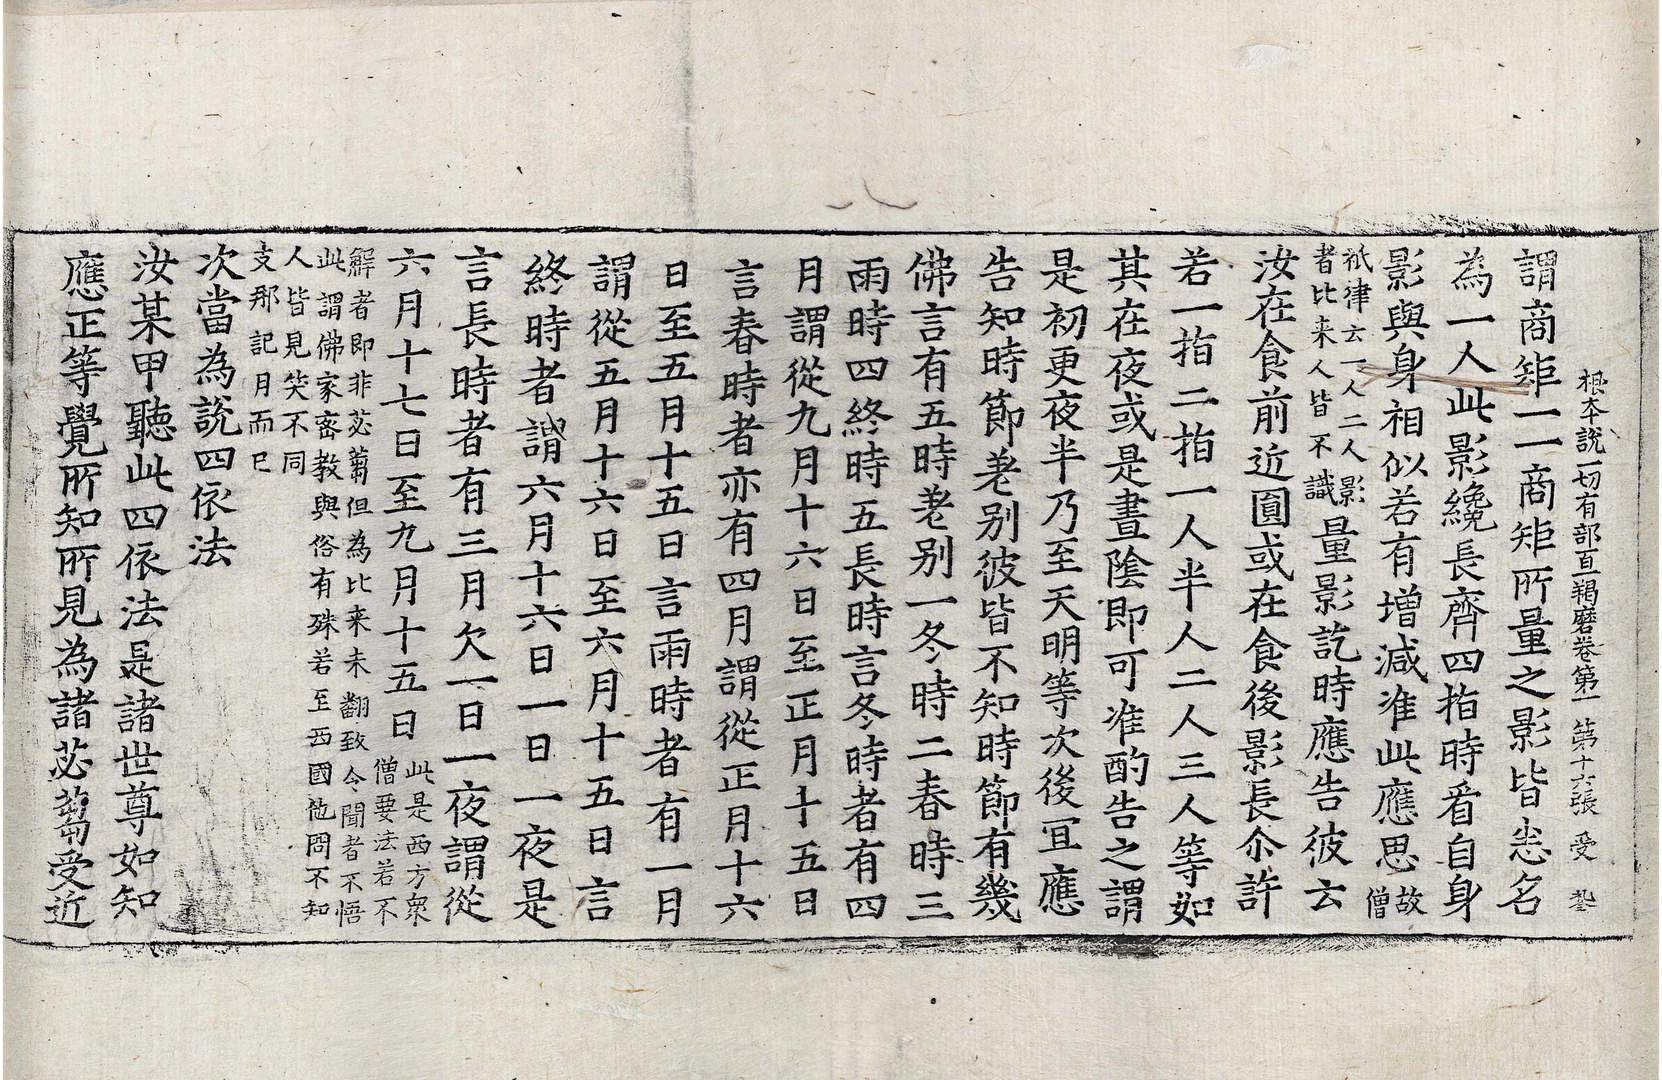 根本說一切有部百一羯磨卷第一 第十六張 受
謂商矩一一商矩所量之影皆悉名
為一人此影纔長齊四指時看自身
影與身相似若有增減准此應思故僧
祇律云一人二人影者比来人皆不識量影訖時應告彼云
汝在食前近圓或在食後影長尒許
若一指二指一人半人二人三人等如
其在夜或是晝陰即可准酌告之謂
是初更夜半乃至天明等次後冝應
告知時節差别彼皆不知時節有幾
佛言有五時差别一冬時二春時三
雨時四終時五長時言冬時者有四
月謂從九月十六日至正月十五日
言春時者亦有四月謂從正月十六
日至五月十五日言雨時者有一月
謂從五月十六日至六月十五日言
終時者謂六月十六日一日一夜是
言長時者有三月欠一日一夜謂從
六月十七日至九月十五日此是西方衆僧要法若不
解者即非苾蒭但為比来未翻致令聞者不悟
此謂佛家密教與俗有殊若至西國他問不知
人皆見笑不同
支那記月而已
次當為說四依法
汝某甲聽此四依法是諸世尊如知
應正等覺所知所見為諸苾蒭受近